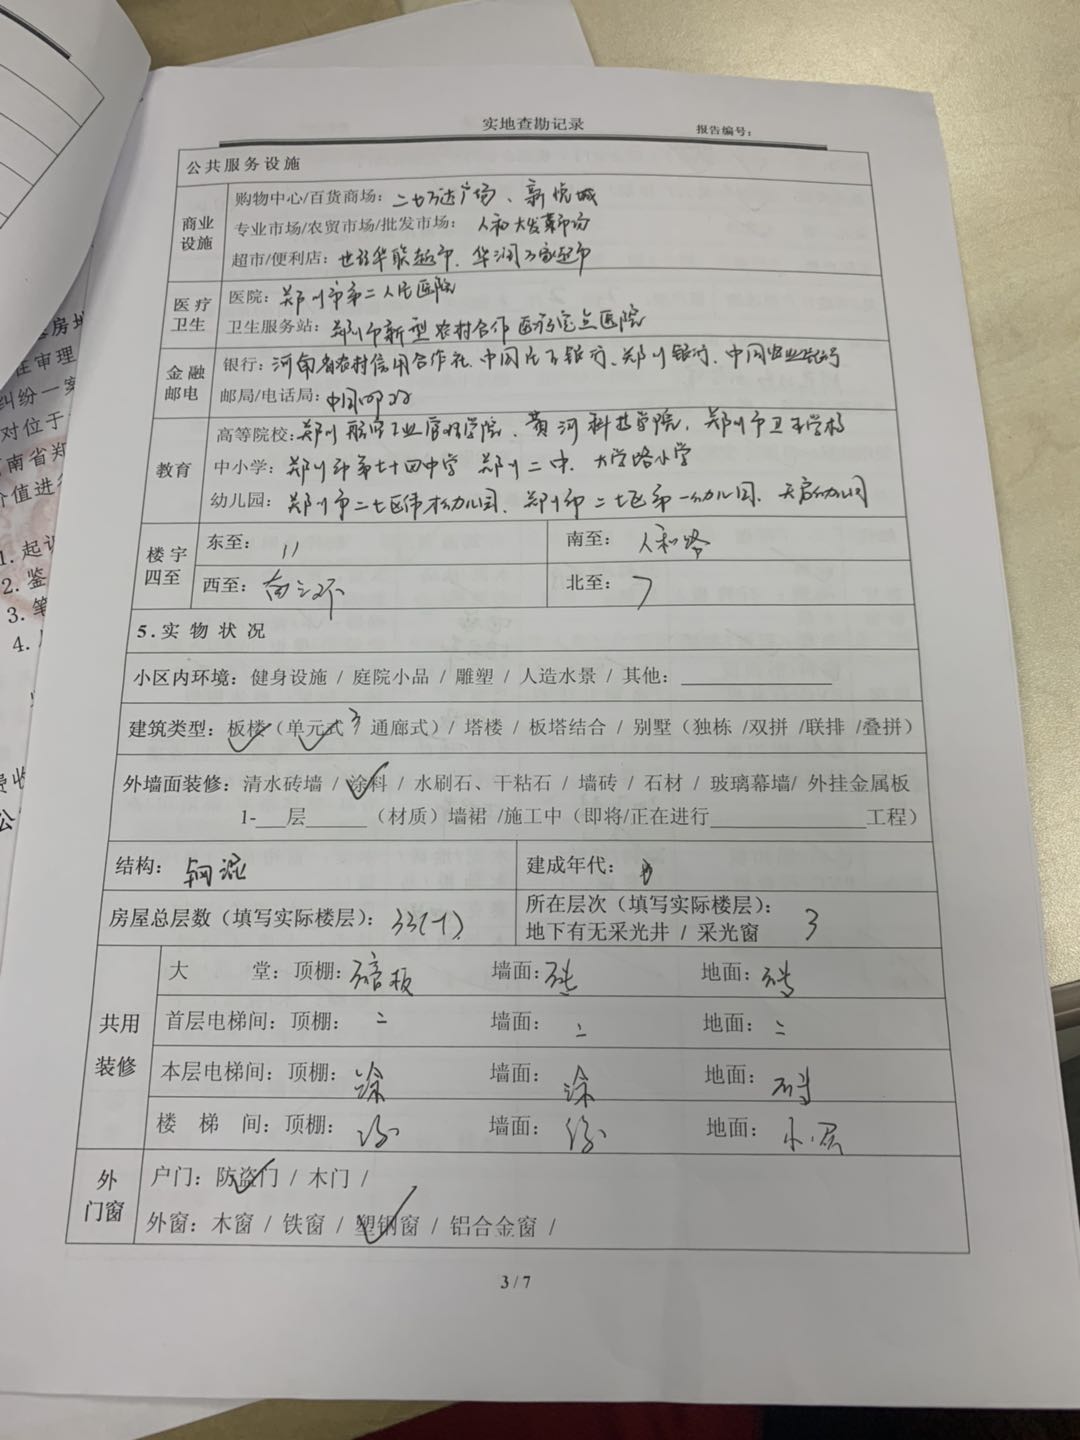 实地查勘记录
报告编号：
公共服务设施
商业设施
购物中心/百货商场：二七万达广场、新悦城
专业市场/农贸市场/批发市场：人和大发菜市场
超市/便利店：世纪华联超市、华润万家超市
医疗卫生
医院：郑州市第二人民医院
卫生服务站：郑州市新型农村合作医疗定点医院
金融邮电
银行：河南省农村信用合作社、中国民生银行、郑州银行、中国农业银行
邮局/电话局：中国邮政
教育
高等院校：郑州航空工业管理学院、黄河科技学院、郑州市卫生学校
中小学：郑州市第七十四中学 郑州二中、大学路小学
幼儿园：郑州市二七区伟才幼儿园、郑州市二七区第一幼儿园、天启幼儿园
楼宇四至
东至：11 南至：人和路
西至：南三环 北至：7
5.实物状况
小区内环境：健身设施 / 庭院小品 / 雕塑 / 人造水景 / 其他：
建筑类型：板楼（单元式 通廊式）/ 塔楼 / 板塔结合 / 别墅（独栋 /双拼 /联排 /叠拼）
外墙面装修：清水砖墙 / 涂料 / 水刷石、干粘石 / 墙砖 / 石材 / 玻璃幕墙/ 外挂金属板
1-___层______（材质）墙裙 /施工中（即将/正在进行________________工程）
结构：钢混 建成年代：
房屋总层数（填写实际楼层）：33(-1) 所在层次（填写实际楼层）： 3
地下有无采光井 / 采光窗
共用装修
大堂：顶棚：石膏板 墙面：砖 地面：砖
首层电梯间：顶棚：= 墙面：= 地面：=
本层电梯间：顶棚：涂 墙面：涂 地面：砖
楼梯间：顶棚：涂 墙面：涂 地面：水泥
外门窗
户门：防盗门 / 木门 /
外窗：木窗 / 铁窗 / 塑钢窗 / 铝合金窗 /
3 / 7
房地
在审理
纠纷一案
对位于
南省郑
价值进行
1. 起诉
2. 鉴
3. 笔
4.
费收
公